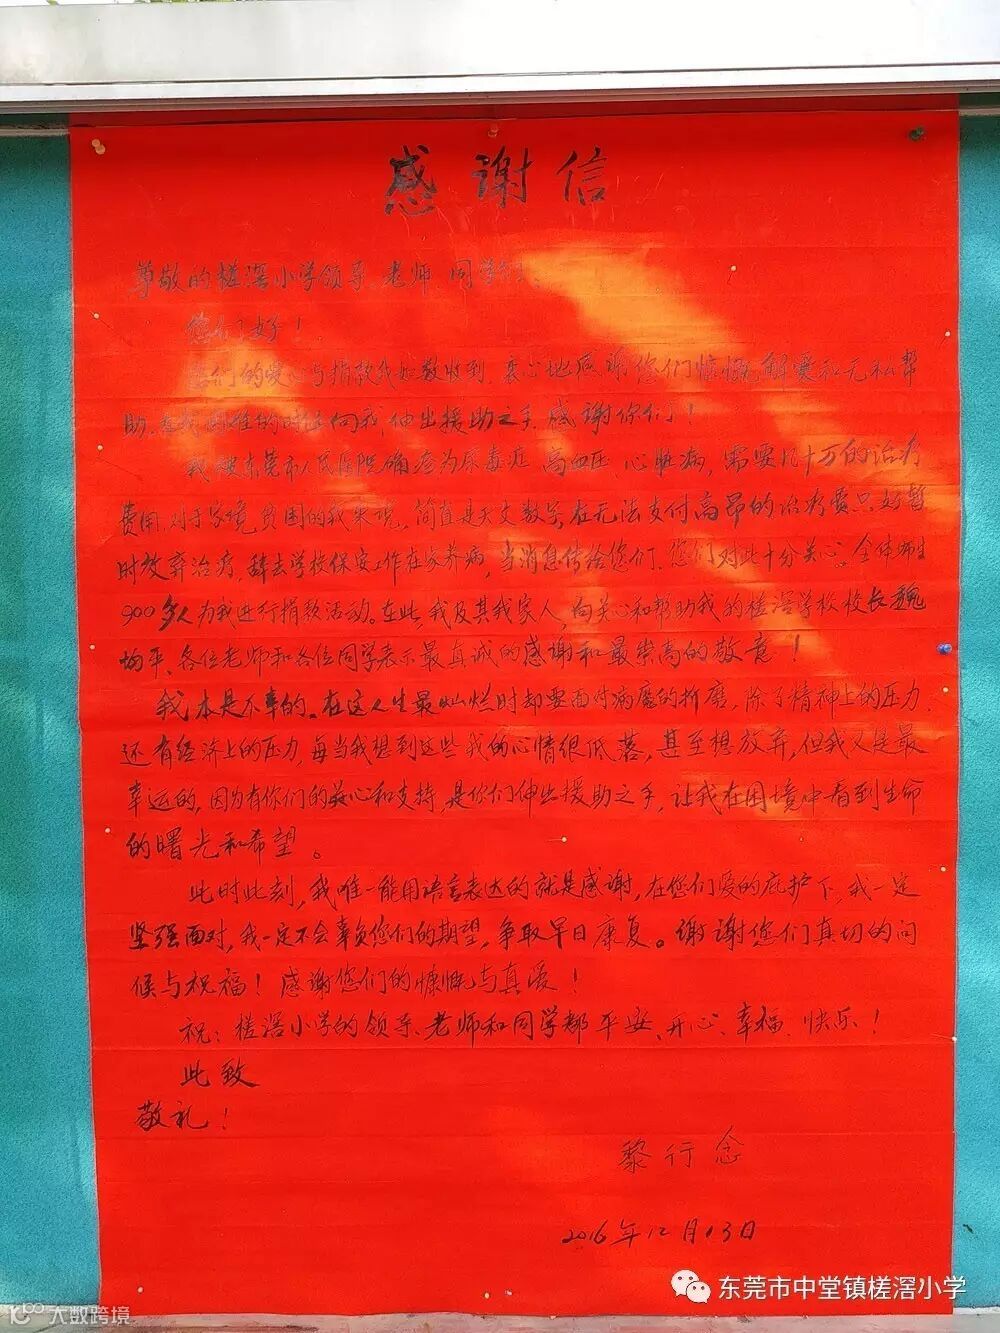 感谢信
尊敬的槎滘小学领导、老师、同学们:
您们好!
您们的爱心与捐款我如数收到,衷心地感谢您们慷慨解囊和无私帮
助,在我困难的时正向我伸出援助之手,感谢你们!
我被东莞市人民医院确诊为尿毒症、高血压、心脏病,需要几十万的治疗
费用,对于家境贫困的我来说,简直是天文数字,在无法支付高昂的治疗费只好暂
时放弃治疗,辞去学校保安工作在家养病,当消息传给您们,您们对此十分关心。全体师生
900多人为我进行捐款活动。在此,我及其我家人,向关心和帮助我的槎滘学校校长魏
均平、各位老师和各位同学表示最真诚的感谢和最崇高的敬意!
我本是不幸的。在这人生最灿烂时却要面对病魔的折磨,除了精神上的压力,
还有经济上的压力,每当我想到这些我的心情很低落,甚至想放弃,但我又是最
幸运的,因为有你们的关心和支持,是你们伸出援助之手,让我在困境中看到生命
的曙光和希望。
此时此刻,我唯一能用语言表达的就是感谢,在您们爱的庇护下,我一定
坚强面对,我一定不会辜负您们的期望,争取早日康复。谢谢您们真切的问
候与祝福!感谢您们的慷慨与真爱!
祝:槎滘小学的领导、老师和同学都平安、开心、幸福、快乐!
此致
敬礼!
黎行念
2016年12月13日
东莞市中堂镇槎滘小学
大数跨境